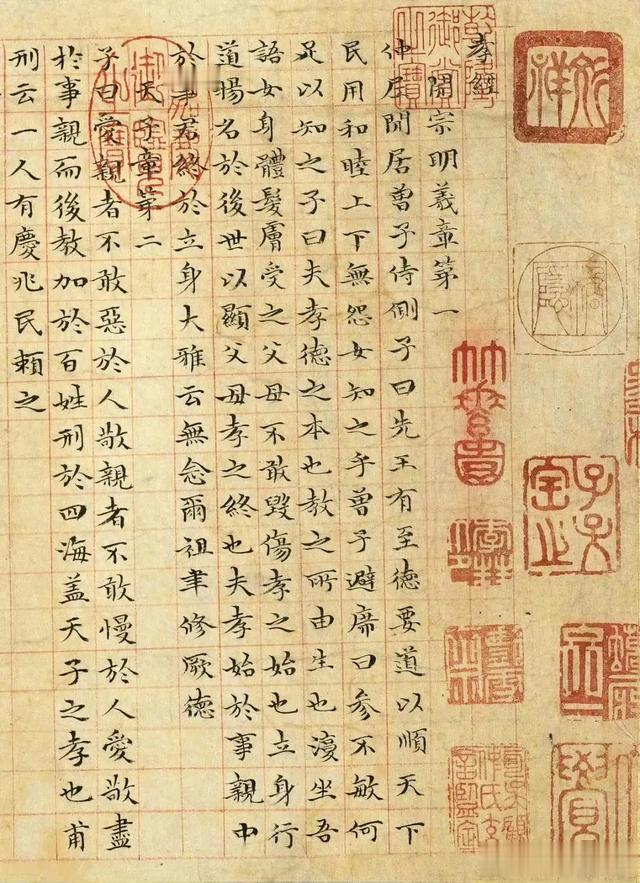 孝經
開宗明義章第一
仲尼閒居曾子侍側子曰先王有至德要道以順天下
民用和睦上下無怨女知之乎曾子避席曰參不敏何
足以知之子曰夫孝德之本也教之所由生也復坐吾
語女身體髮膚受之父母不敢毀傷孝之始也立身行
道揚名於後世以顯父母孝之終也夫孝始於事親中
於事君終於立身大雅云無念爾祖聿修厥德
天子章第二
子曰愛親者不敢惡於人敬親者不敢慢於人愛敬盡
於事親而後教加於百姓刑於四海盖天子之孝也甫
刑云一人有慶兆民賴之
乾隆御覽之寶